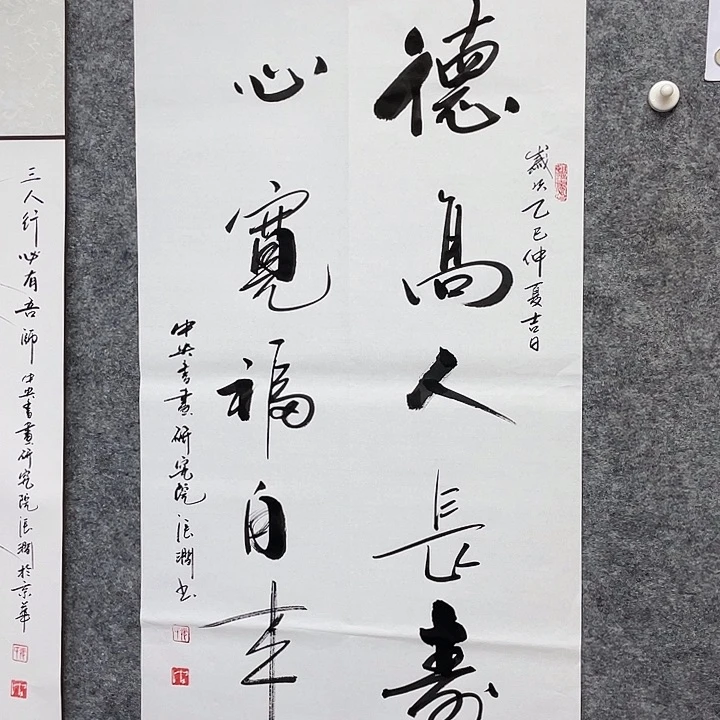 歲次乙巳仲夏吉日
德高人長壽
心寬福自来
中央書畫研究院張潤書
三人行必有吾師
中央書畫研究院張潤於京華